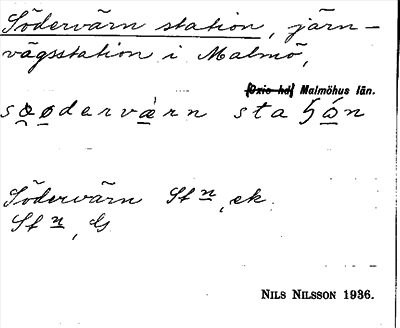 Södervärn station, järn-
vägsstation i Malmö,
[Oxie hd] Malmöhus län.
Södervärn St n, ek.
St n,
NILS NILSSON 1936.